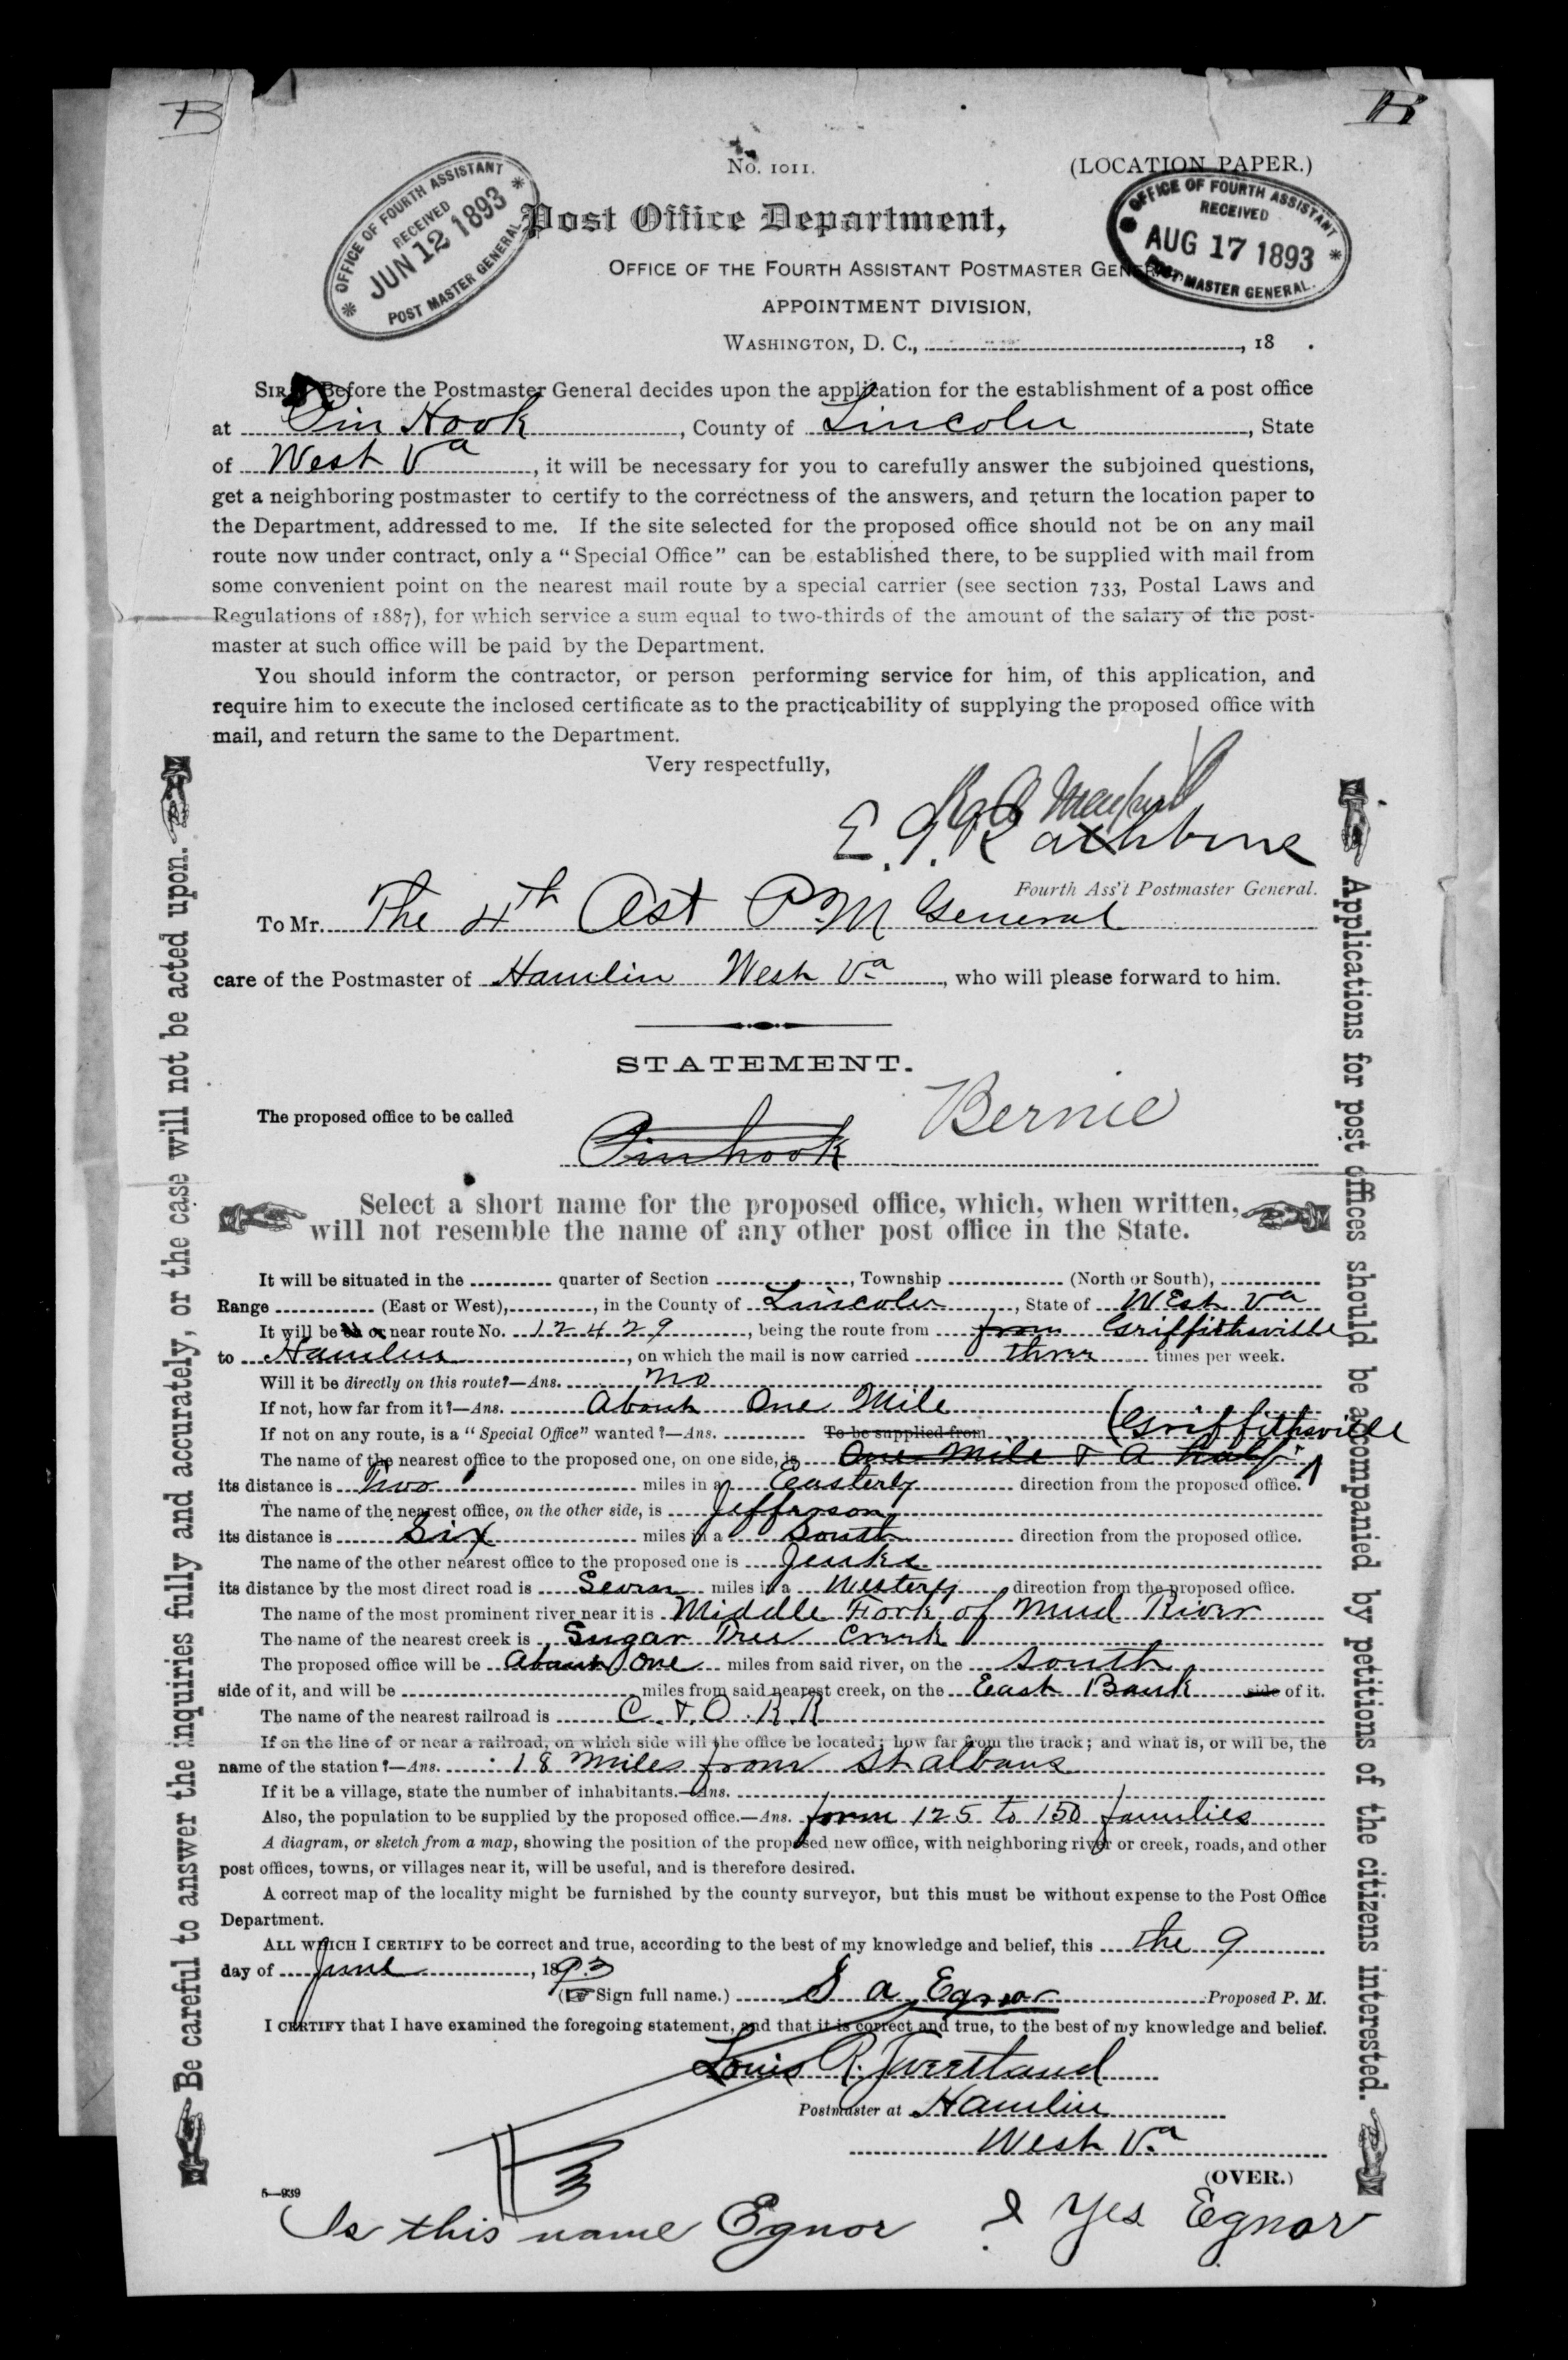 B
B
No. 1011.
(LOCATION PAPER.)
OFFICE OF FOURTH ASSISTANT
RECEIVED
JUN 12 1893
POST MASTER GENERAL
OFFICE OF FOURTH ASSISTANT
RECEIVED
AUG 17 1893
POST MASTER GENERAL.
Post Office Department,
OFFICE OF THE FOURTH ASSISTANT POSTMASTER GENERAL
APPOINTMENT DIVISION,
WASHINGTON, D. C., , 18 .
SIR: Before the Postmaster General decides upon the application for the establishment of a post office
at Pin Hook, County of Lincoln, State
of West Va, it will be necessary for you to carefully answer the subjoined questions,
get a neighboring postmaster to certify to the correctness of the answers, and return the location paper to
the Department, addressed to me. If the site selected for the proposed office should not be on any mail
route now under contract, only a "Special Office" can be established there, to be supplied with mail from
some convenient point on the nearest mail route by a special carrier (see section 733, Postal Laws and
Regulations of 1887), for which service a sum equal to two-thirds of the amount of the salary of the post-
master at such office will be paid by the Department.
You should inform the contractor, or person performing service for him, of this application, and
require him to execute the inclosed certificate as to the practicability of supplying the proposed office with
mail, and return the same to the Department.
Very respectfully,
E. G. Rathbone
Fourth Ass't Postmaster General.
To Mr. The 4th Ast P.M General
care of the Postmaster of Hamlin West Va, who will please forward to him.
STATEMENT.
The proposed office to be called
Pinhook Bernie
Select a short name for the proposed office, which, when written,
will not resemble the name of any other post office in the State.
It will be situated in the quarter of Section , Township (North or South),
Range (East or West), , in the County of Lincoln, State of West Va
It will be on or near route No. 12429, being the route from from Griffithsville
to Hamlin, on which the mail is now carried three times per week.
Will it be directly on this route?—Ans. no
If not, how far from it?—Ans. About One Mile
If not on any route, is a "Special Office" wanted?—Ans. To be supplied from (Griffithsville
The name of the nearest office to the proposed one, on one side, is One Mile & a half
its distance is Two miles in a Easterly direction from the proposed office.
The name of the nearest office, on the other side, is Jefferson
its distance is Six miles in a South direction from the proposed office.
The name of the other nearest office to the proposed one is Jenks
its distance by the most direct road is Seven miles in a Westerly direction from the proposed office.
The name of the most prominent river near it is Middle Fork of Mud River
The name of the nearest creek is Sugar Tree Creek
The proposed office will be About one miles from said river, on the South
side of it, and will be miles from said nearest creek, on the East Bank side of it.
The name of the nearest railroad is C. & O. R.R
If on the line of or near a railroad, on which side will the office be located; how far from the track; and what is, or will be, the
name of the station?—Ans. 18 miles from St albans
If it be a village, state the number of inhabitants.—Ans.
Also, the population to be supplied by the proposed office.—Ans. from 125 to 150 families
A diagram, or sketch from a map, showing the position of the proposed new office, with neighboring river or creek, roads, and other
post offices, towns, or villages near it, will be useful, and is therefore desired.
A correct map of the locality might be furnished by the county surveyor, but this must be without expense to the Post Office
Department.
ALL WHICH I CERTIFY to be correct and true, according to the best of my knowledge and belief, this the 9
day of June, 1893
(Sign full name.) S a Egnor Proposed P. M.
I CERTIFY that I have examined the foregoing statement, and that it is correct and true, to the best of my knowledge and belief.
Louis R.
Postmaster at Hamlin
West Va
(OVER.)
5—939
Is this name Egnor ? Yes Egnor
Be careful to answer the inquiries fully and accurately, or the case will not be acted upon.
Applications for post offices should be accompanied by petitions of the citizens interested.